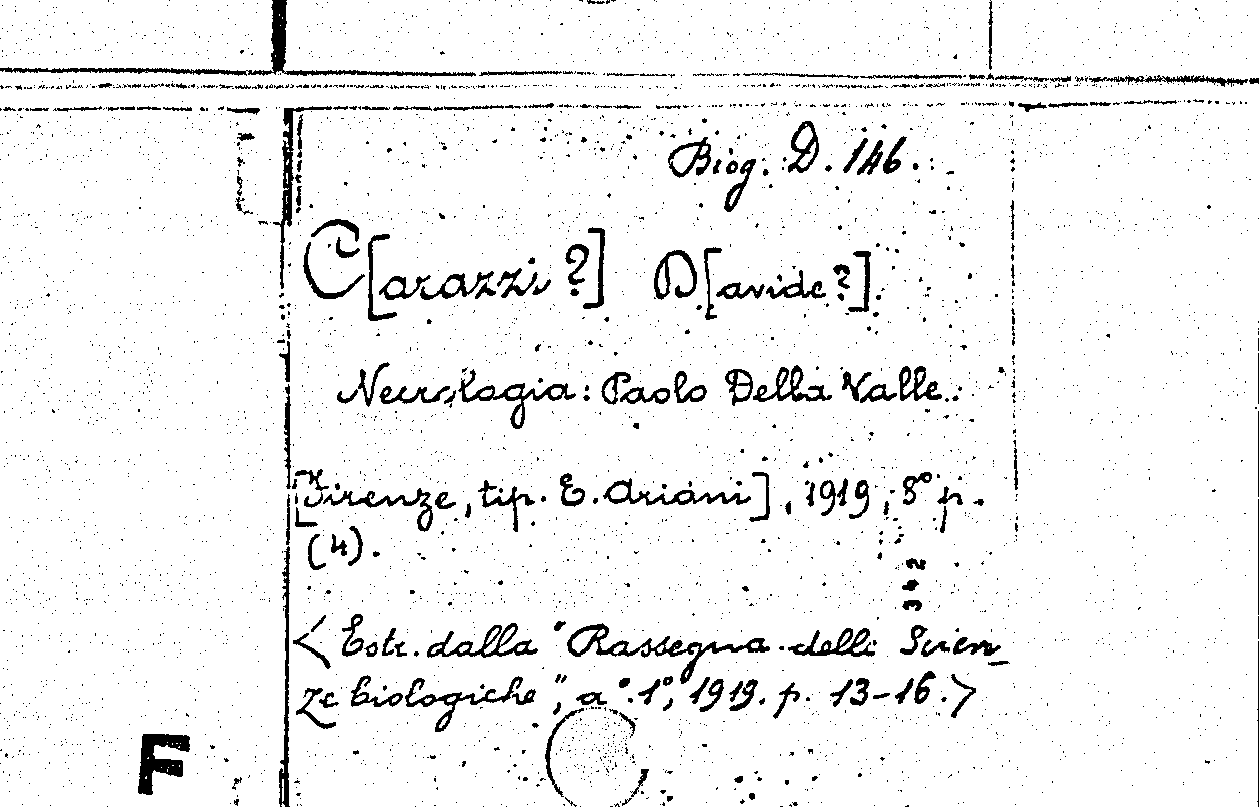 Biog. D. 146.
C[arazzi?] D[avide?].
Necrologia: Paolo Della Valle.
[Firenze, tip. E. Ariani], 1919, 8° p.
(4).
342
<Estr. dalla "Rassegna delle Scien-
ze biologiche", a°. 1°, 1919. p. 13-16.>
F